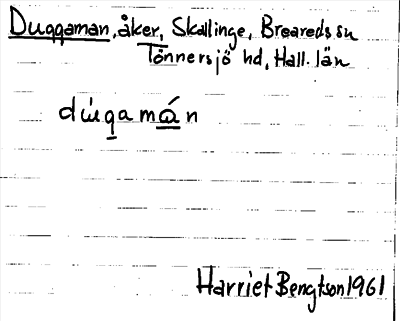 Duggaman, åker, Skallinge, Breareds sn
Tönnersjö hd, Hall. län
dúgamán
Harriet Bengtson 1961